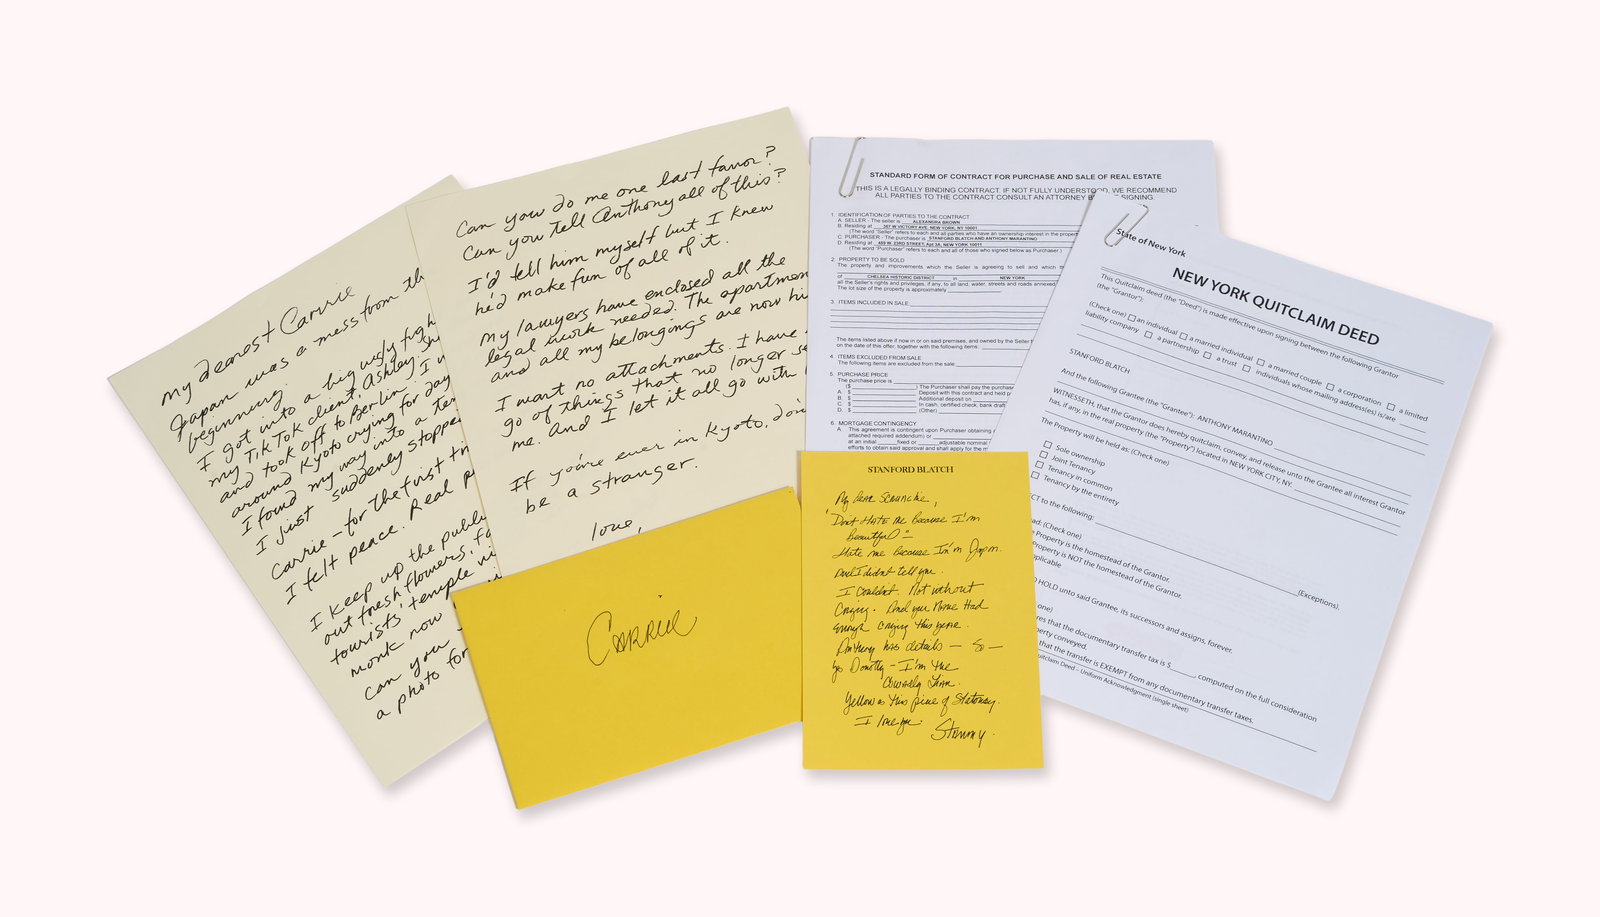 my dearest Carrie
Japan was a mess from th
beginning.
I got into a big ugly figh
my TikTok client, Ashley. Sh
and took off to Berlin. I w
around Kyoto crying for day
I found my way into a tem
I just suddenly stopped
Carrie – for the first tim
I felt peace. Real p
I keep up the public
out fresh flowers. Fo
tourists' temple vi
monk now
can you
a photo for
Can you do me one last favor?
Can you tell Anthony all of this?
I'd tell him myself but I knew
he'd make fun of all of it.
My lawyers have enclosed all the
legal work needed. The apartmen
and all my belongings are now hi
I want no attachments. I have
go of things that no longer se
me. And I let it all go with l
If you're ever in Kyoto, don'
be a stranger.
love,
CARRIE
STANFORD BLATCH
My Dear Scrunchie,
"Don't HATE me Because I'm
Beautiful" –
Hate me because I'm in Japan.
And I didn't tell you.
I couldn't. Not without
Crying. And you Mame Had
enough crying this year.
Anthony has details — So —
yo Dorothy – I'm the
Cowardly Lion.
Yellow as this piece of Stationary.
I love you.
Stanny.
STANDARD FORM OF CONTRACT FOR PURCHASE AND SALE OF REAL ESTATE
THIS IS A LEGALLY BINDING CONTRACT. IF NOT FULLY UNDERSTOOD, WE RECOMMEND
ALL PARTIES TO THE CONTRACT CONSULT AN ATTORNEY B SIGNING.
1. IDENTIFICATION OF PARTIES TO THE CONTRACT
A. SELLER - The seller is ALEXANDRA BROWN
B. Residing at 367 W VICTORY AVE, NEW YORK, NY 10001
(The word "Seller" refers to each and all parties who have an ownership interest in the propert
C. PURCHASER - The purchaser is STANFORD BLATCH AND ANTHONY MARANTINO
D. Residing at 459 W. 23RD STREET, Apt 3A, NEW YORK 10011
(The word "Purchaser" refers to each and all of those who signed below as Purchaser.)
2. PROPERTY TO BE SOLD
The property and improvements which the Seller is agreeing to sell and which th
of CHELSEA HISTORIC DISTRICT in NEW YORK
all the Seller's rights and privileges, if any, to all land, water, streets and roads annexed
The lot size of the property is approximately
3. ITEMS INCLUDED IN SALE
The items listed above if now in or on said premises, and owned by the Seller
on the date of this offer, together with the following items:
4. ITEMS EXCLUDED FROM SALE
The following items are excluded from the sale
5. PURCHASE PRICE
The purchase price is
($ ) The Purchaser shall pay the purchase
A. $ Deposit with this contract and held p
B. $ Additional deposit on
C. $ In cash, certified check, bank draft
D. $ (Other)
6. MORTGAGE CONTINGENCY
A. This agreement is contingent upon Purchaser obtaining
attached required addendum) or
at an initial fixed or adjustable nominal
efforts to obtain said approval and shall apply for the m
State of New York
NEW YORK QUITCLAIM DEED
This Quitclaim deed (the "Deed") is made effective upon signing between the following Grantor
(the "Grantor"):
(Check one) an individual a married individual a married couple a corporation a limited
liability company a partnership a trust individuals whose mailing address(es) is/are
STANFORD BLATCH
And the following Grantee (the "Grantee"): ANTHONY MARANTINO
WITNESSETH, that the Grantor does hereby quitclaim, convey, and release unto the Grantee all interest Grantor
has, if any, in the real property (the "Property") located in NEW YORK CITY, NY.
The Property will be held as: (Check one)
Sole ownership
Joint Tenancy
Tenancy in common
Tenancy by the entirety
CT to the following:
(Exceptions).
ad: (Check one)
Property is the homestead of the Grantor.
roperty is NOT the homestead of the Grantor.
plicable
D HOLD unto said Grantee, its successors and assigns, forever.
one)
res that the documentary transfer tax is $ , computed on the full consideration
perty conveyed.
that the transfer is EXEMPT from any documentary transfer taxes.
uitclaim Deed – Uniform Acknowledgment (single sheet)